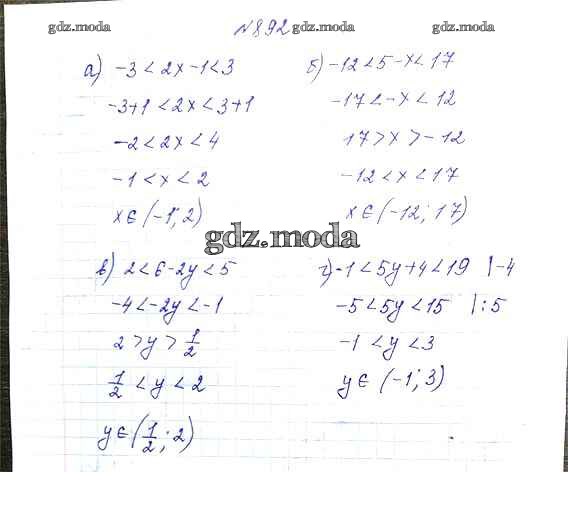 gdz.moda №892 gdz.moda gdz.moda
а) -3 < 2x - 1 < 3
-3+1 < 2x < 3+1
-2 < 2x < 4
-1 < x < 2
x ∈ (-1; 2)
б) -12 < 5 - x < 17
-17 < -x < 12
17 > x > -12
-12 < x < 17
x ∈ (-12; 17)
gdz.moda
в) 2 < 6 - 2y < 5
-4 < -2y < -1
2 > y > 1/2
1/2 < y < 2
y ∈ (1/2; 2)
г) -1 < 5y + 4 < 19 | -4
-5 < 5y < 15 | : 5
-1 < y < 3
y ∈ (-1; 3)